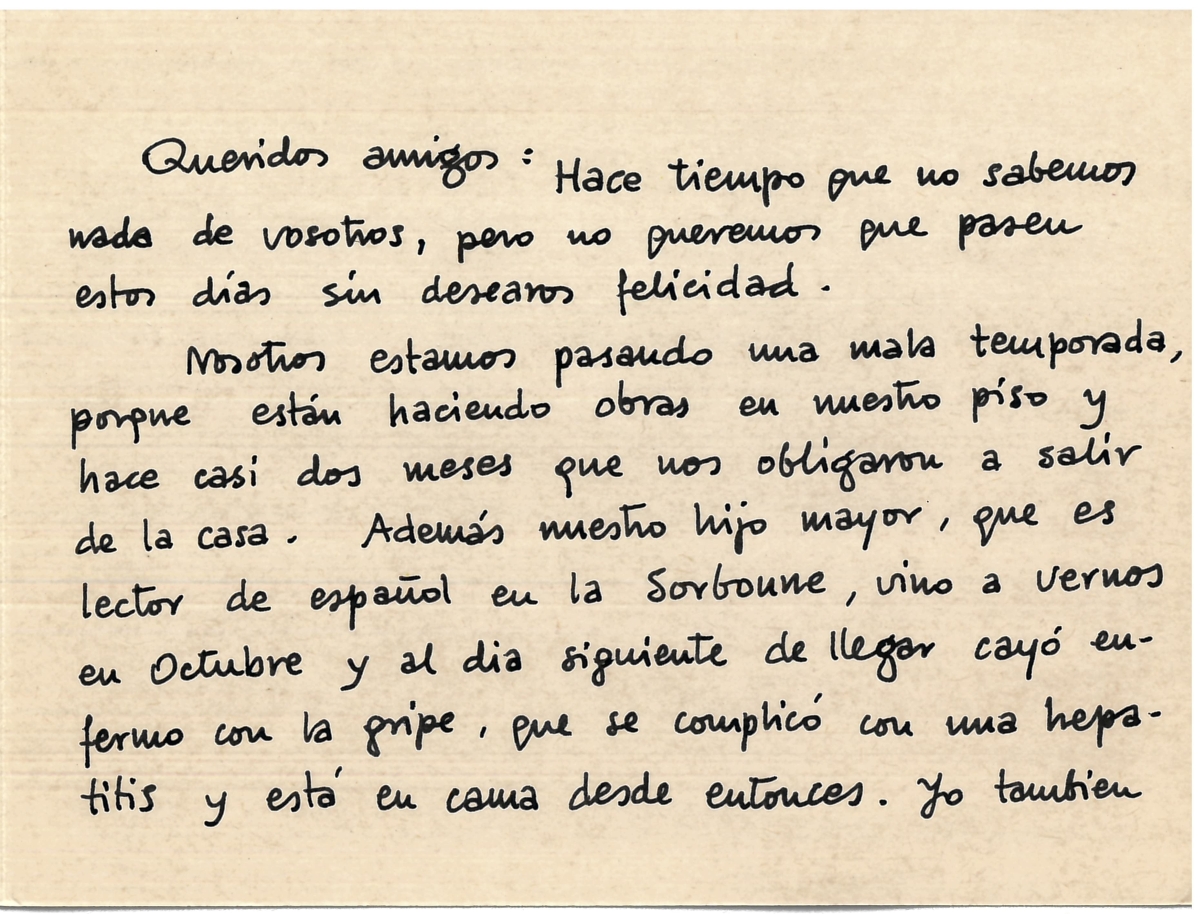 Queridos amigos: Hace tiempo que no sabemos
nada de vosotros, pero no queremos que pasen
estos días sin desearos felicidad.
Nosotros estamos pasando una mala temporada,
porque están haciendo obras en nuestro piso y
hace casi dos meses que nos obligaron a salir
de la casa. Además nuestro hijo mayor, que es
lector de español en la Sorbonne, vino a vernos
en Octubre y al dia siguiente de llegar cayó en-
fermo con la gripe, que se complicó con una hepa-
titis y está en cama desde entonces. Yo tambien